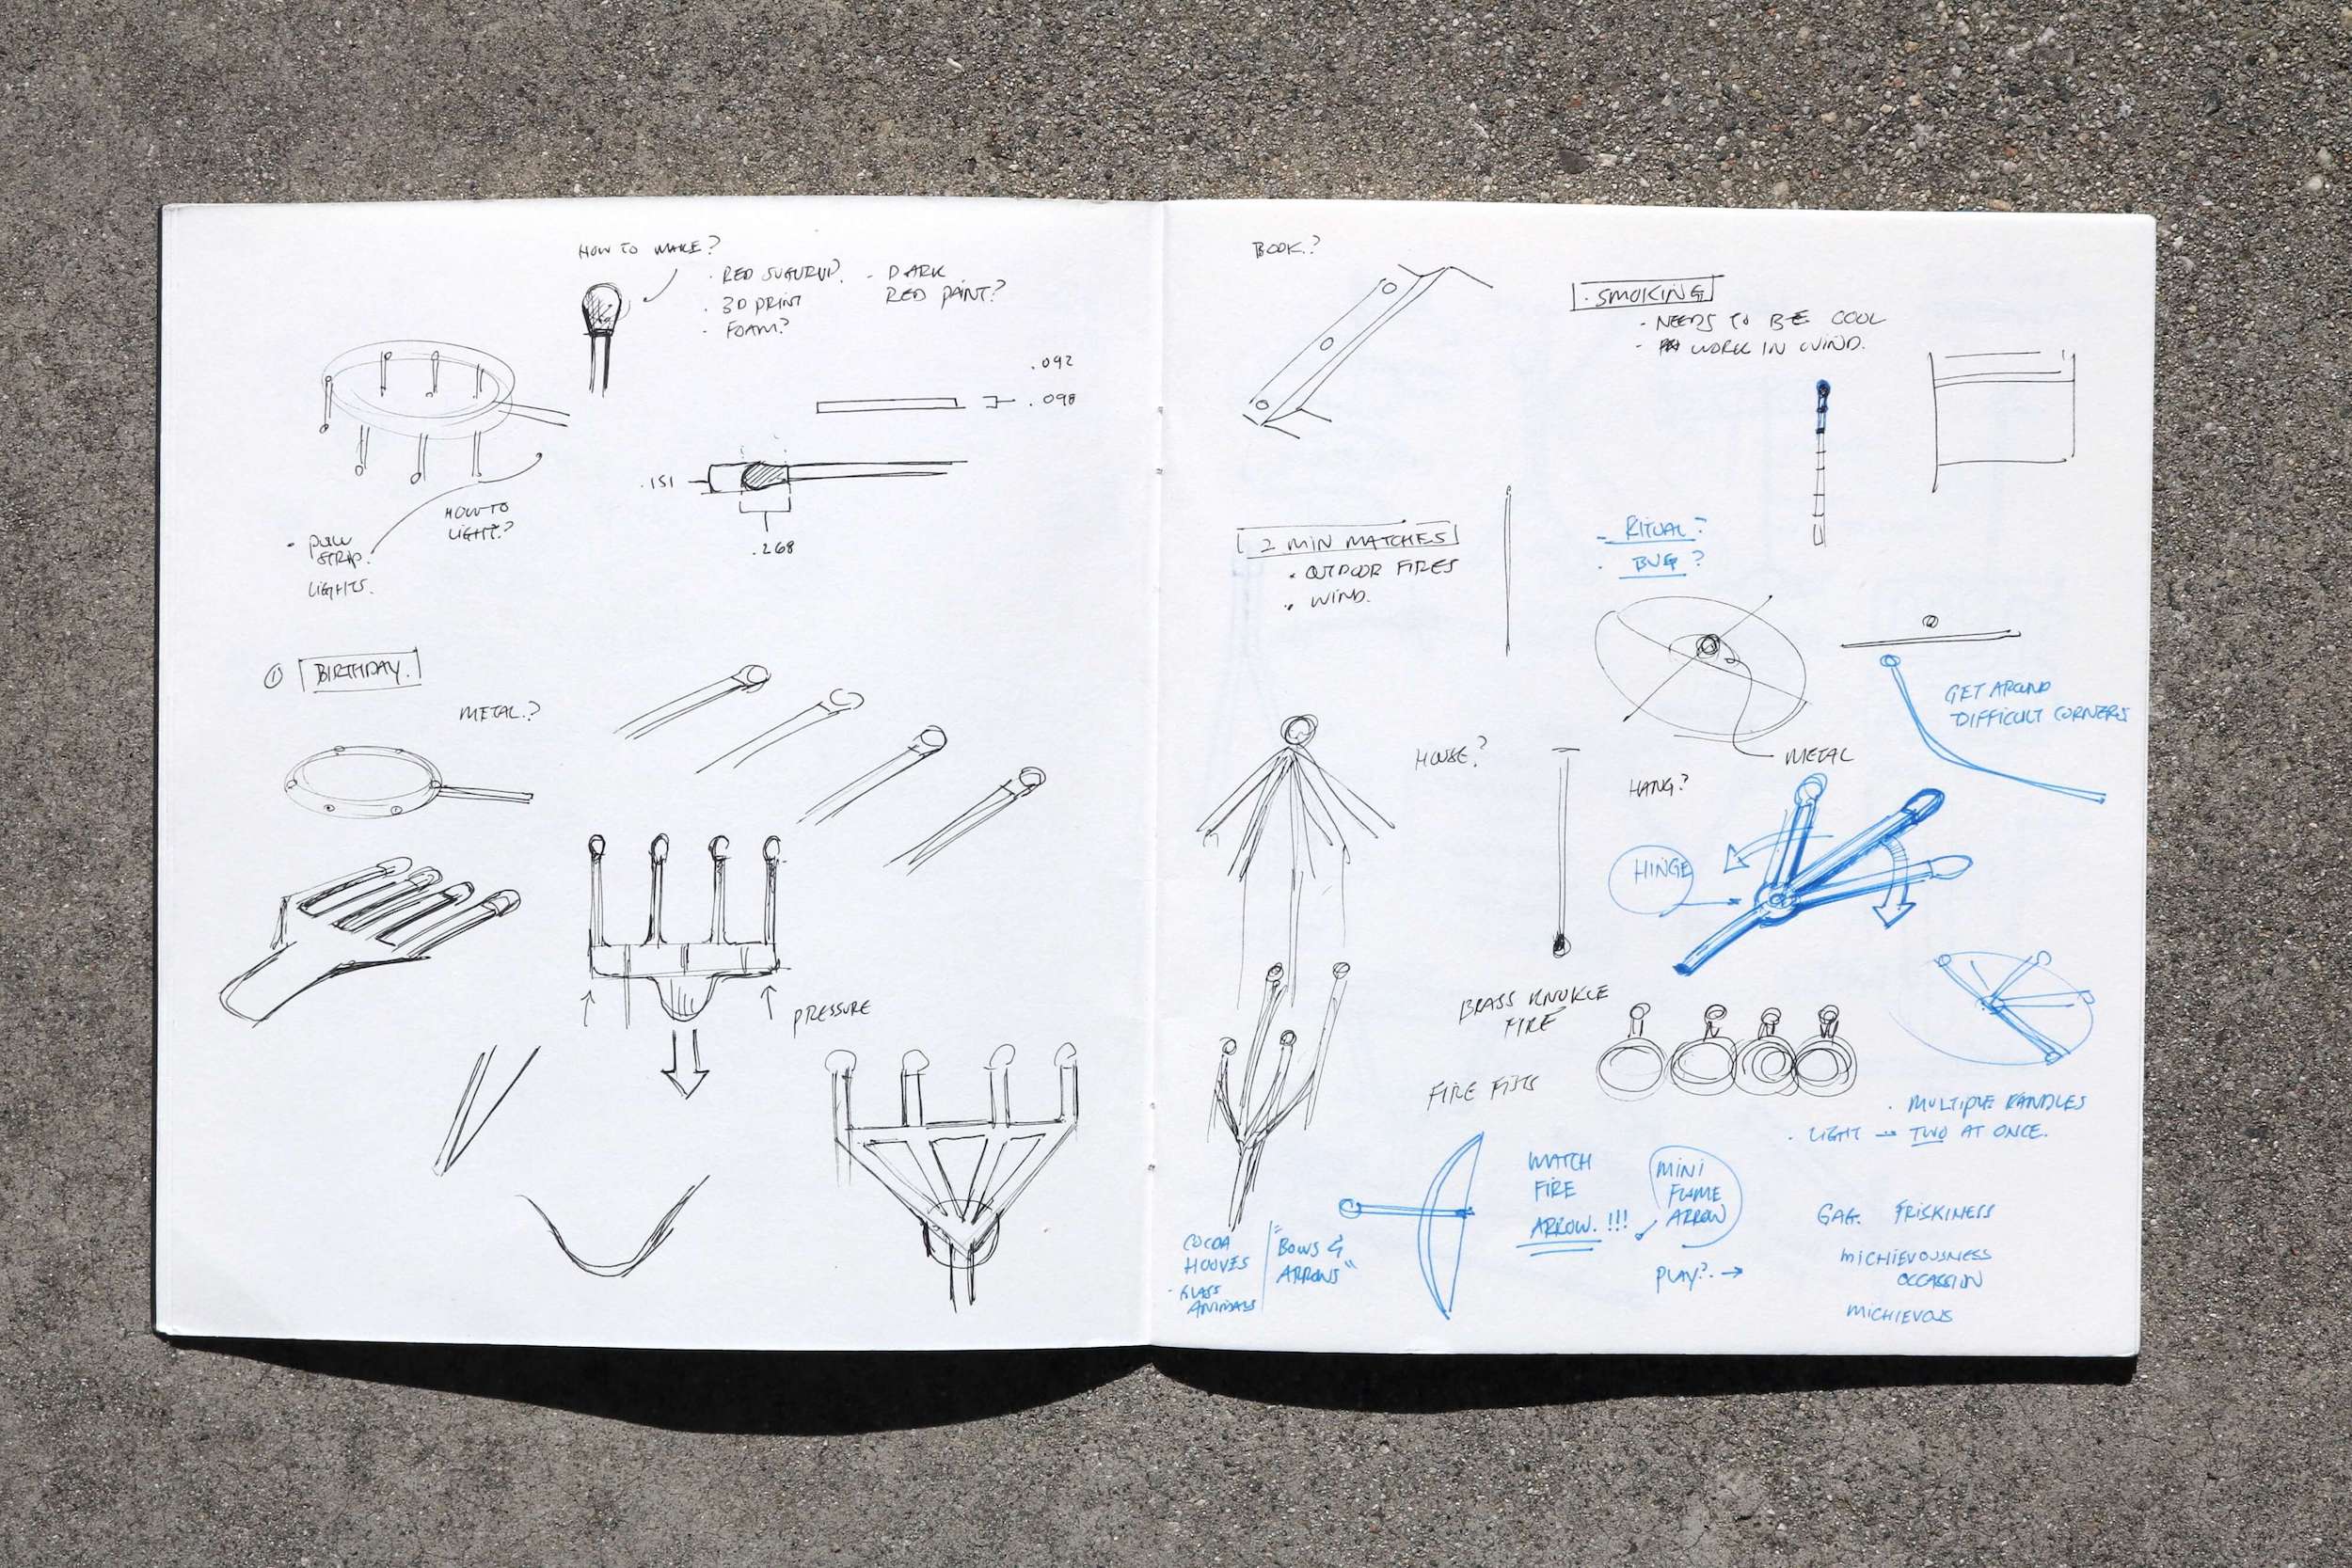 HOW TO MAKE?
· RED SUGURU?
· 3D PRINT
· FOAM?
- DARK
RED PAINT?
.092
.098
.151
.268
HOW TO
LIGHT?
- PULL
STRIP.
LIGHTS.
① BIRTHDAY.
METAL?
PRESSURE
BOOK?
· SMOKING
· NEEDS TO BE COOL
· WORK IN WIND.
2 MIN MATCHES
· OUTDOOR FIRES
· WIND.
- RITUAL?
· BUG?
METAL
GET AROUND
DIFFICULT CORNERS
HOUSE?
HANG?
HINGE
BRASS KNUKLE
FIRE
FIRE FISTS
· MULTIPLE KANDLES
· LIGHT → TWO AT ONCE.
MATCH
FIRE
ARROW. !!!
MINI
FLAME
ARROW
PLAY?. →
GAG. FRISKINESS
MICHIEVOUSNESS
OCCASSION
MICHIEVOUS
COCOA
HOOVES
· GLASS
ANIMALS
"BOWS &
ARROWS"